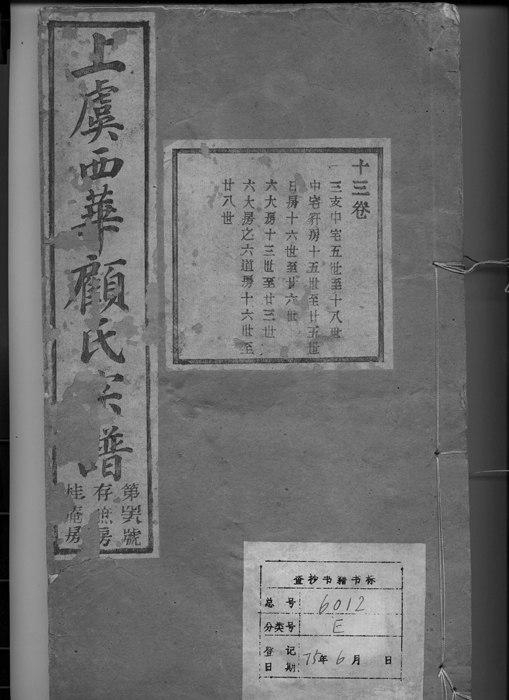 上虞西華顧氏宗譜
第 號
存庶房
桂庵房
十三卷
一三支中宅五世至十八世
中宅 房十五世至廿五世
日房十六世至廿六世
六大房十三世至廿三世
六大房之六道房十六世至
廿八世
查抄书籍书标
总号 6012
分类号 E
登记日期 75年6月 日